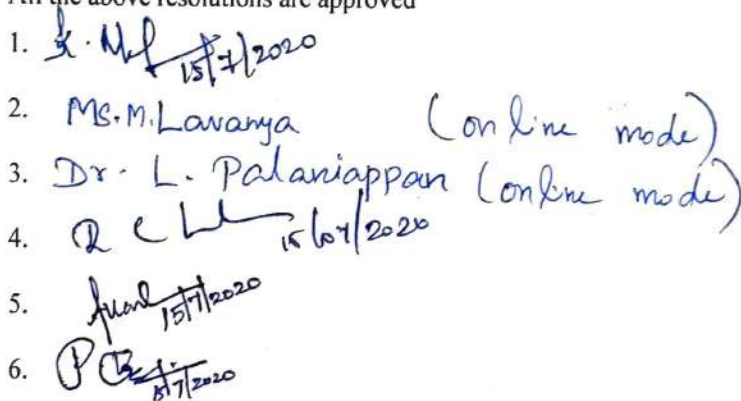 All the above resolutions are approved
1. 15/7/2020
2. Ms. M. Lavanya (online mode)
3. Dr. L. Palaniappan (online mode)
4. 15/07/2020
5. 15/7/2020
6. 15/7/2020